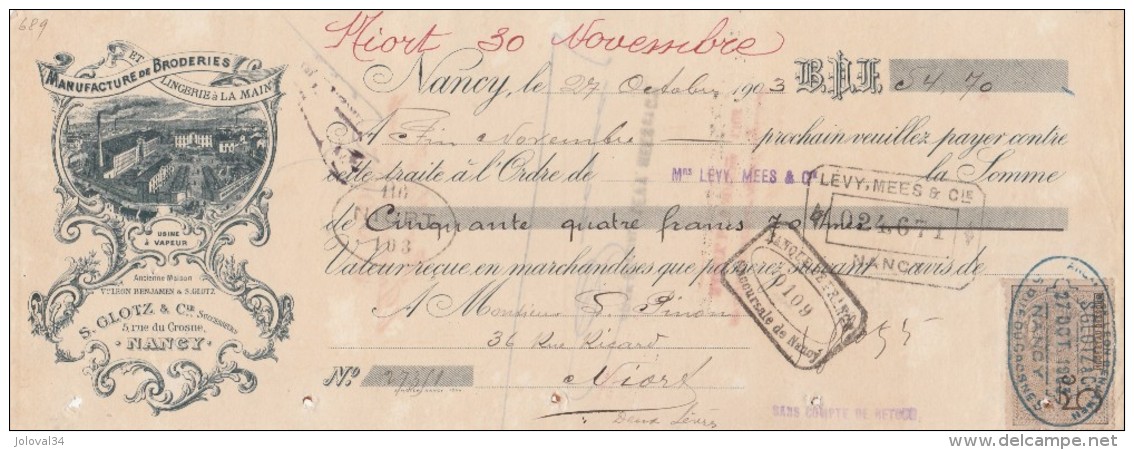 689
Niort 30 Novembre
MANUFACTURE DE BRODERIES
ET
LINGERIE à LA MAIN
USINE
à VAPEUR
Ancienne Maison
Vve IRON BENJAMEN & S. GLOTZ
S. GLOTZ & Cie SUCCESSEURS
5, rue du Crosne,
NANCY
Nancy, le 27 Octobre 1903 B.P.F. 54,70
A Fin Novembre prochain veuillez payer contre
cette traite à l'Ordre de Mrs LEVY, MEES & Cie la Somme
de Cinquante quatre francs 70
Valeur reçue en marchandises que passerez suivant avis de
A Monsieur Pinon
36 Rue Ricard
Niort
Deux Sèvres
No
LEVY, MEES & CIE
024671
NANCY
116
NIORT
103
Succursale de Nancy
SANS COMPTE DE RETOUR
NANCY
joloval34
delcampe.net